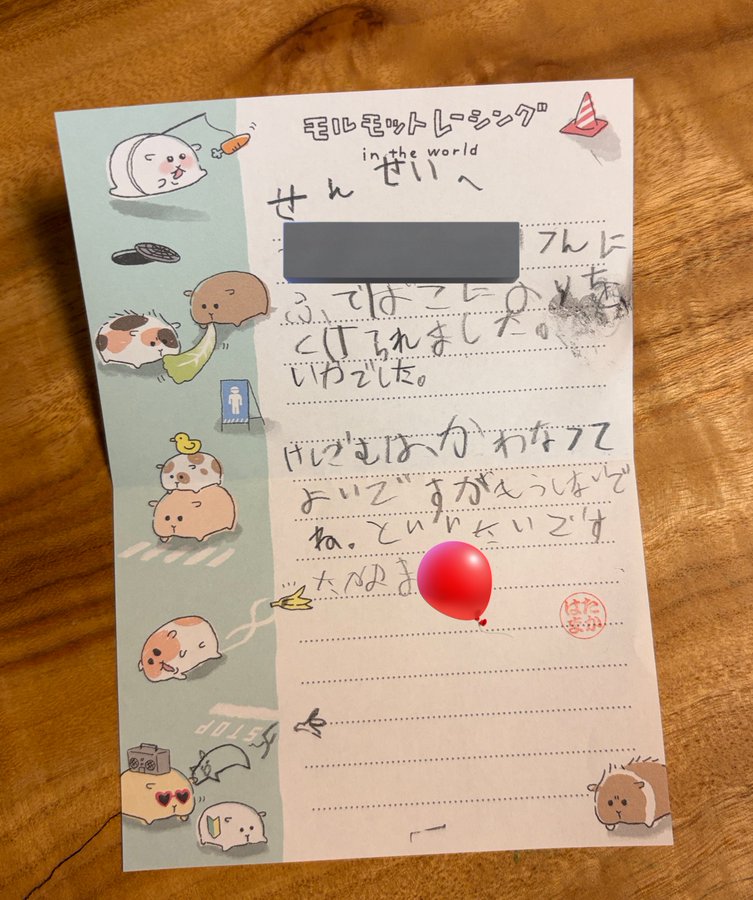 モルモットレーシング
in the world
せんせいへ
くんに
ふでばこにのり
つけられました。
いやでした。
けしごむは、かわなくて
よいですがもうしないで
ね。といいたいです
たかはま
たか
はま
STOP